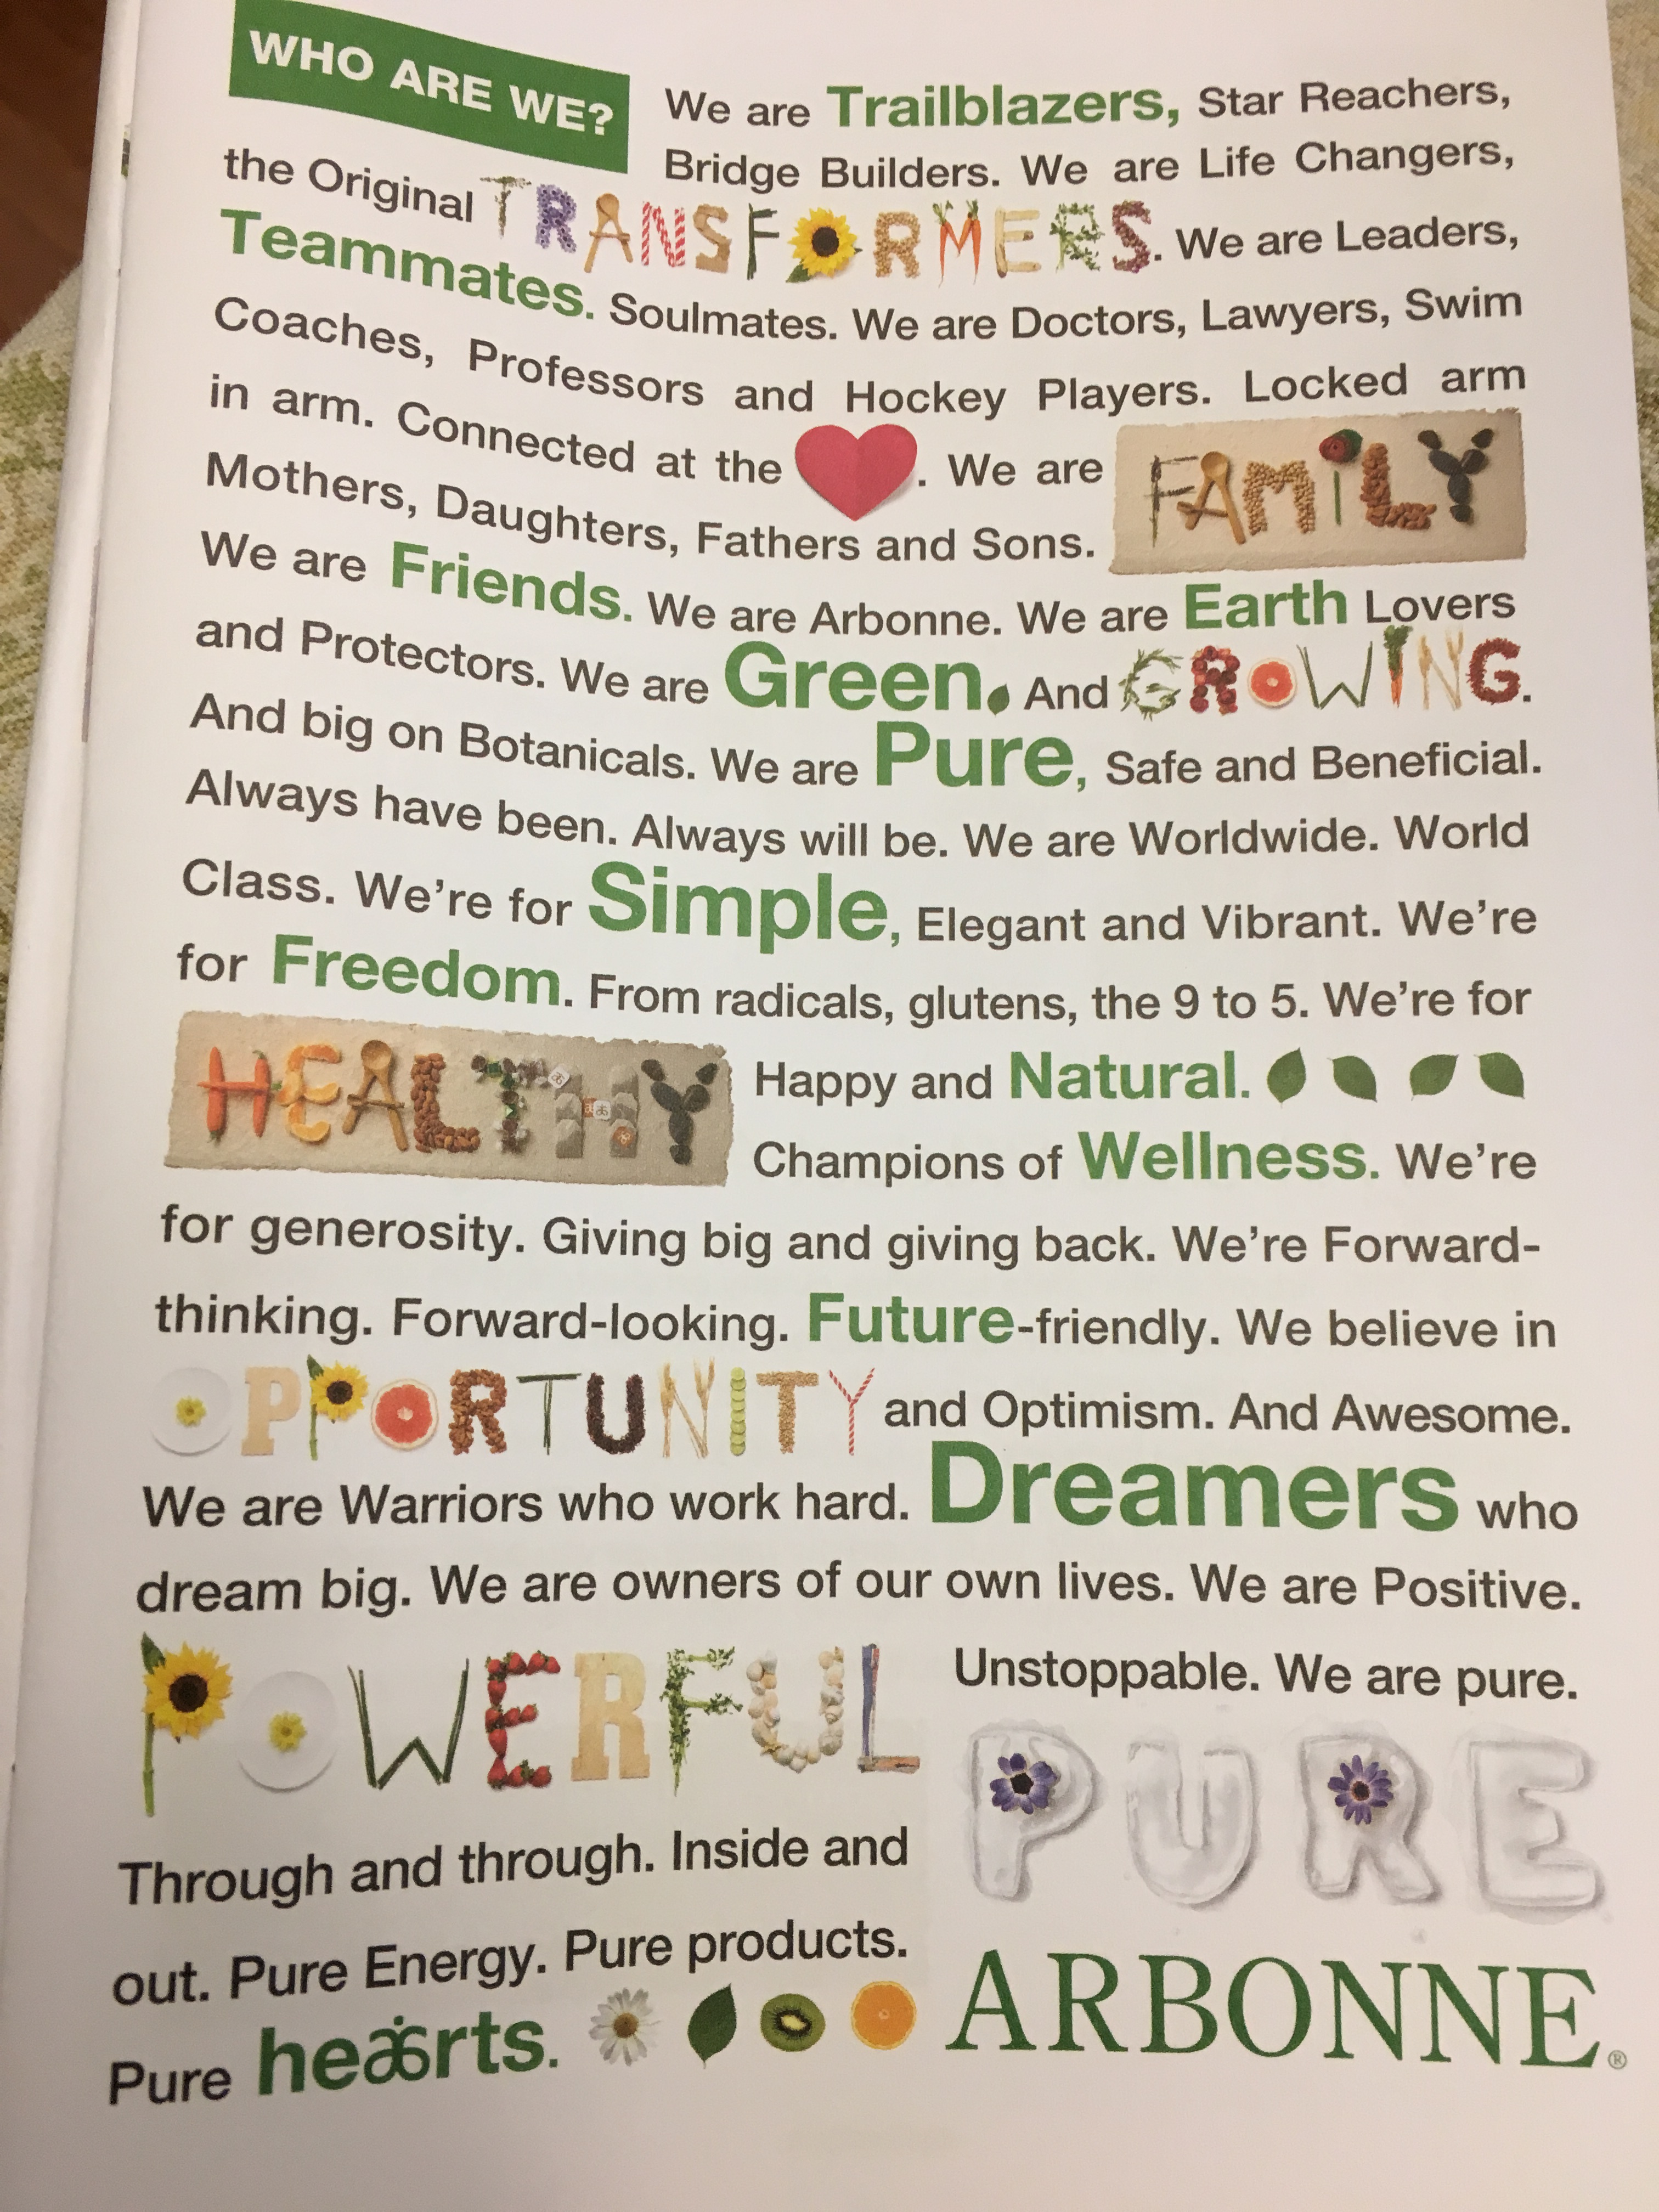 WHO ARE WE?
We are Trailblazers, Star Reachers,
Bridge Builders. We are Life Changers,
the Original TRANSFORMERS. We are Leaders,
Teammates. Soulmates. We are Doctors, Lawyers, Swim
Coaches, Professors and Hockey Players. Locked arm
in arm. Connected at the . We are FAMiLY
Mothers, Daughters, Fathers and Sons.
We are Friends. We are Arbonne. We are Earth Lovers
and Protectors. We are Green. And GROWING.
And big on Botanicals. We are Pure, Safe and Beneficial.
Always have been. Always will be. We are Worldwide. World
Class. We're for Simple, Elegant and Vibrant. We're
for Freedom. From radicals, glutens, the 9 to 5. We're for
HEALTHY Happy and Natural.
Champions of Wellness. We're
for generosity. Giving big and giving back. We're Forward-
thinking. Forward-looking. Future-friendly. We believe in
OPPORTUNITY and Optimism. And Awesome.
We are Warriors who work hard. Dreamers who
dream big. We are owners of our own lives. We are Positive.
POWERFUL Unstoppable. We are pure.
PURE
Through and through. Inside and
out. Pure Energy. Pure products.
Pure hearts.
ARBONNE®